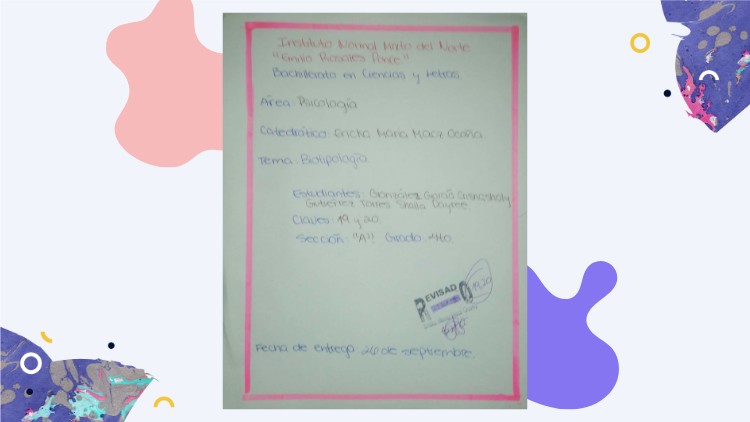 Instituto Normal Mixto del Norte
"Emilio Rosales Ponce"
Bachillerato en Ciencias y Letras
Área: Psicología
Catedrático: Ericka María Macz
Tema: Biotipología
Estudiantes: González García
Gutiérrez Torres Sheila Dayree
Claves: 19 y 20.
Sección: "A" Grado: 4to.
REVISADO
19,20
Fecha de entrega 26 de septiembre.